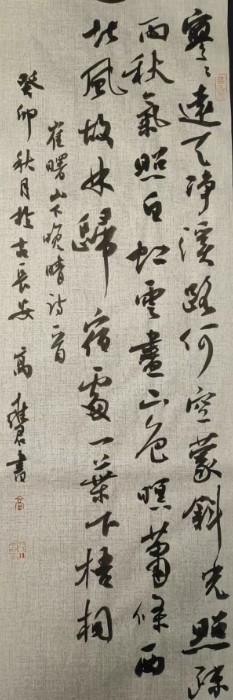 寥々遠天净溪路何空蒙斜光照疎
雨秋氣照白虹雲盡山色暝蕭條西
北風故林歸宿處一葉下梧桐
崔曙山下晚晴诗一首
癸卯秋月於古長安高書
高